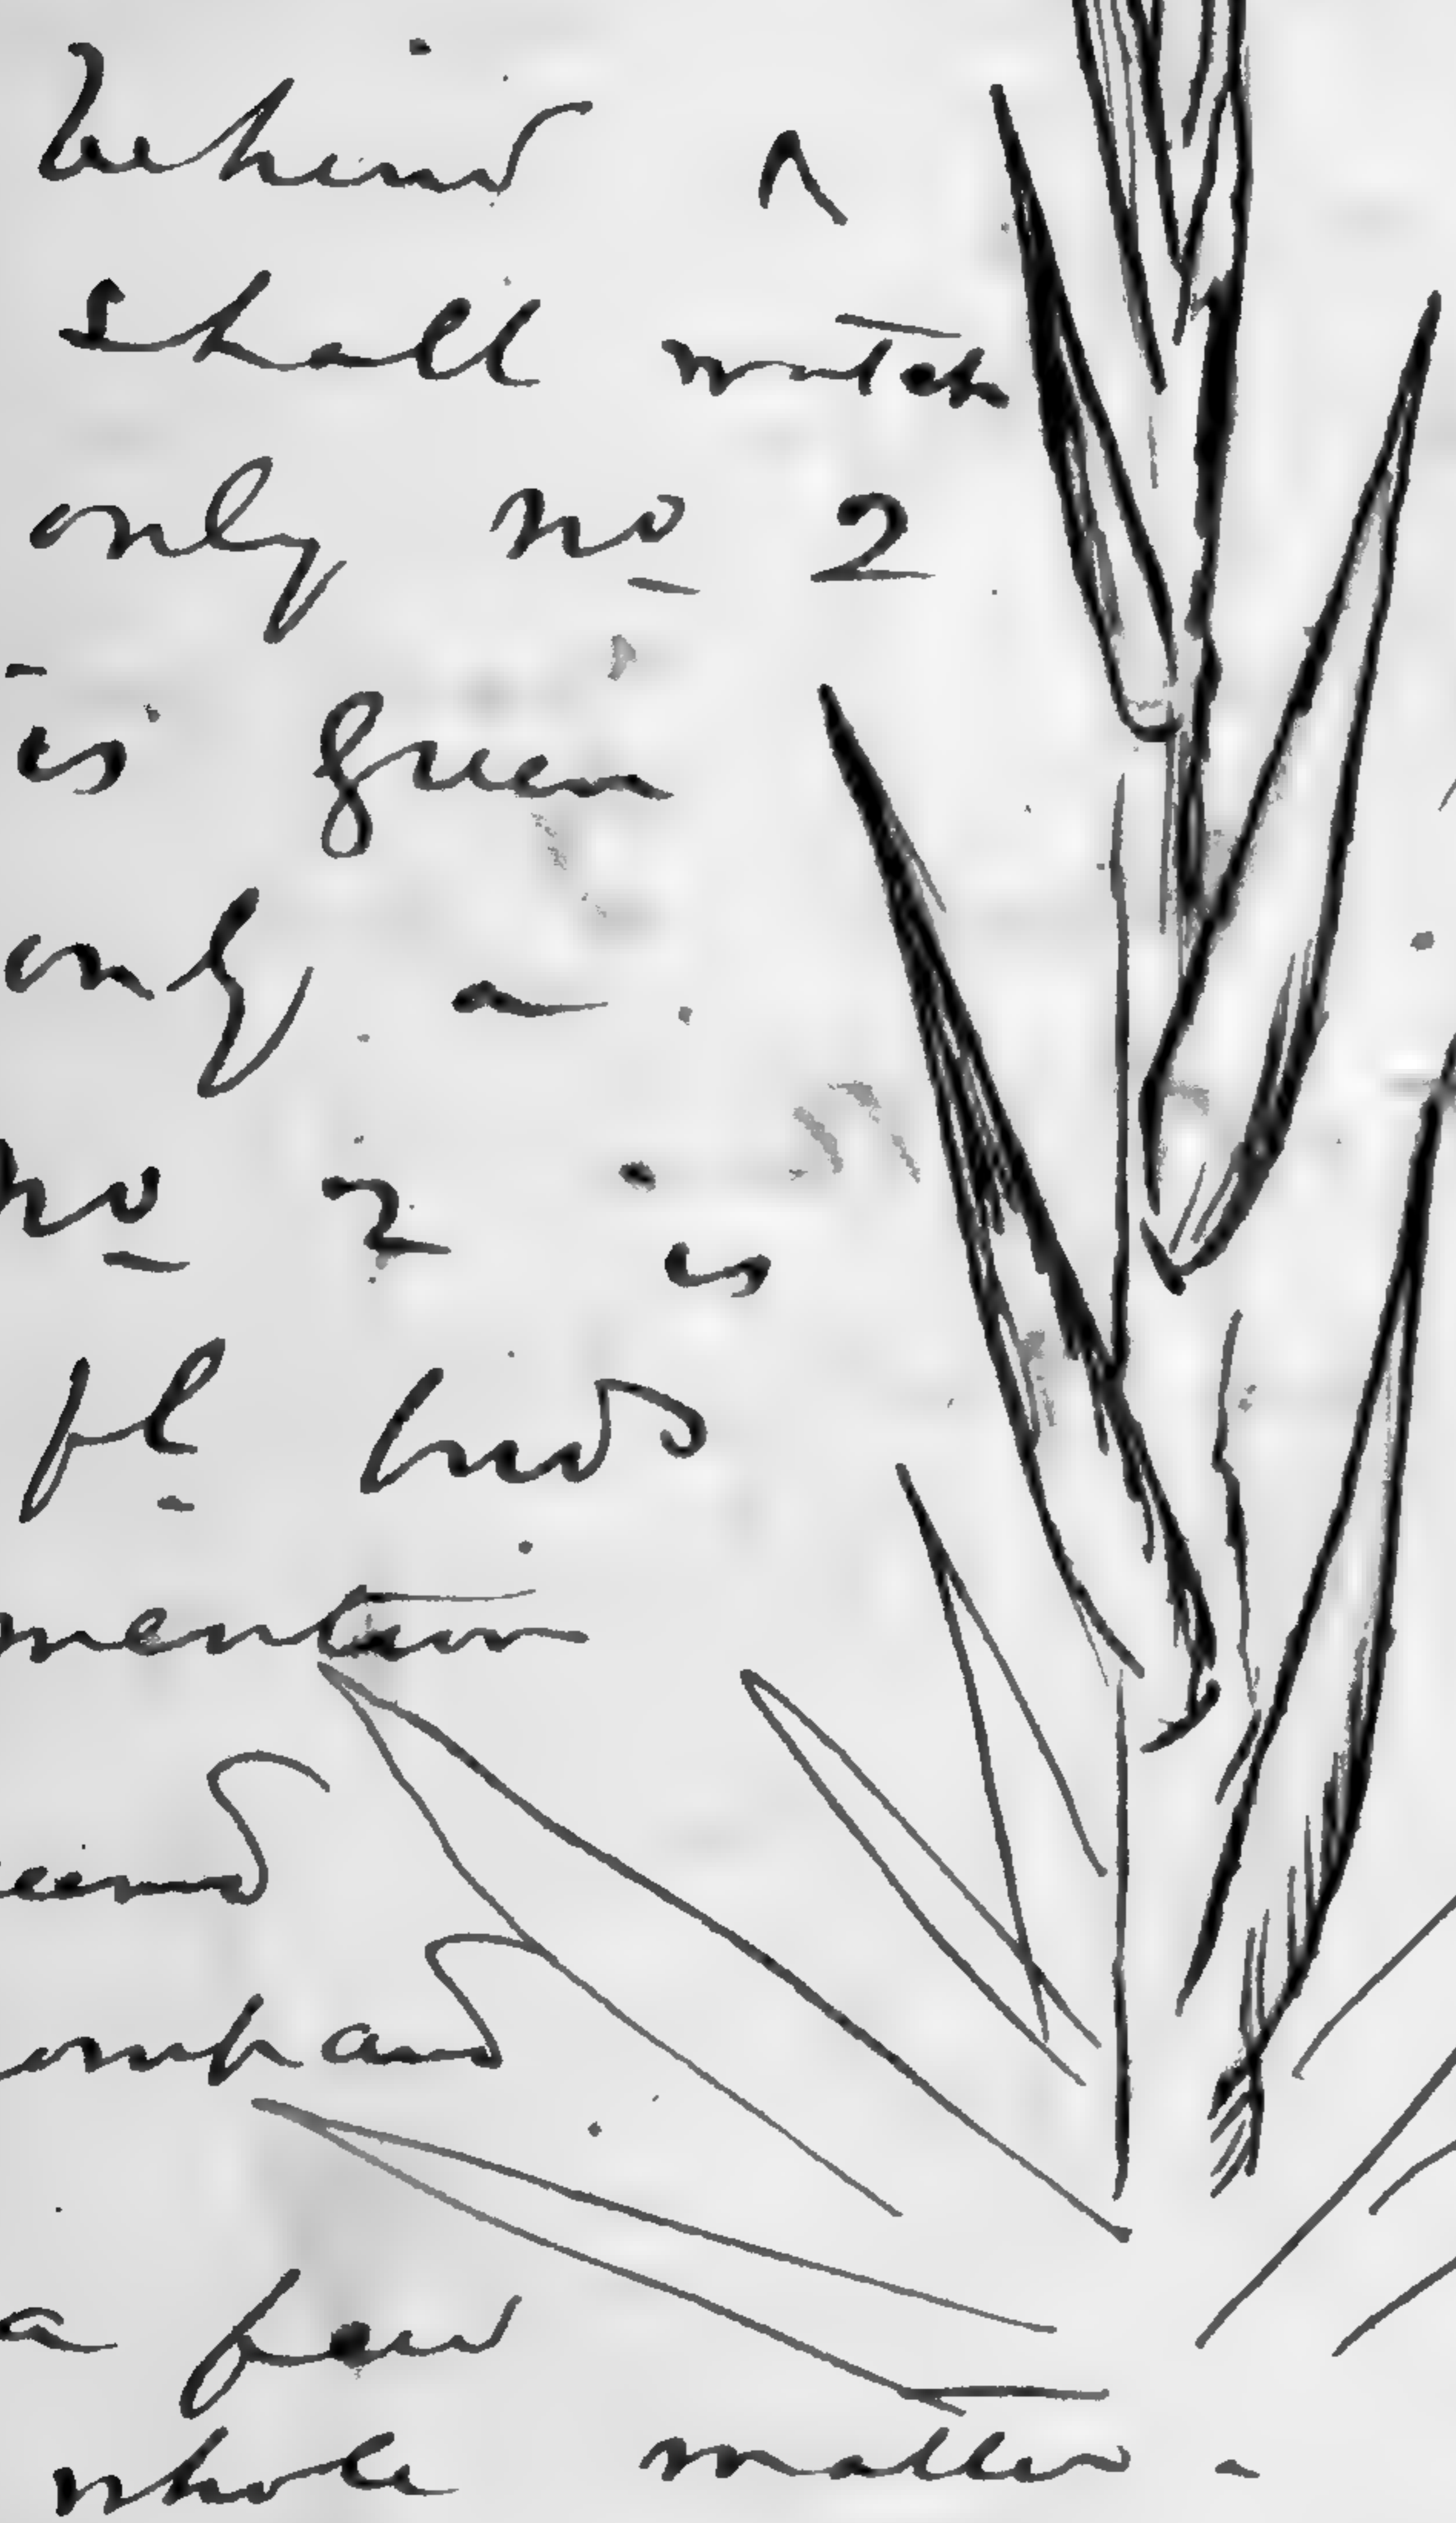 behind ^
shall watch
only no 2
is green
only a
no 2 is
fl buds
mention

a few
whole matter -